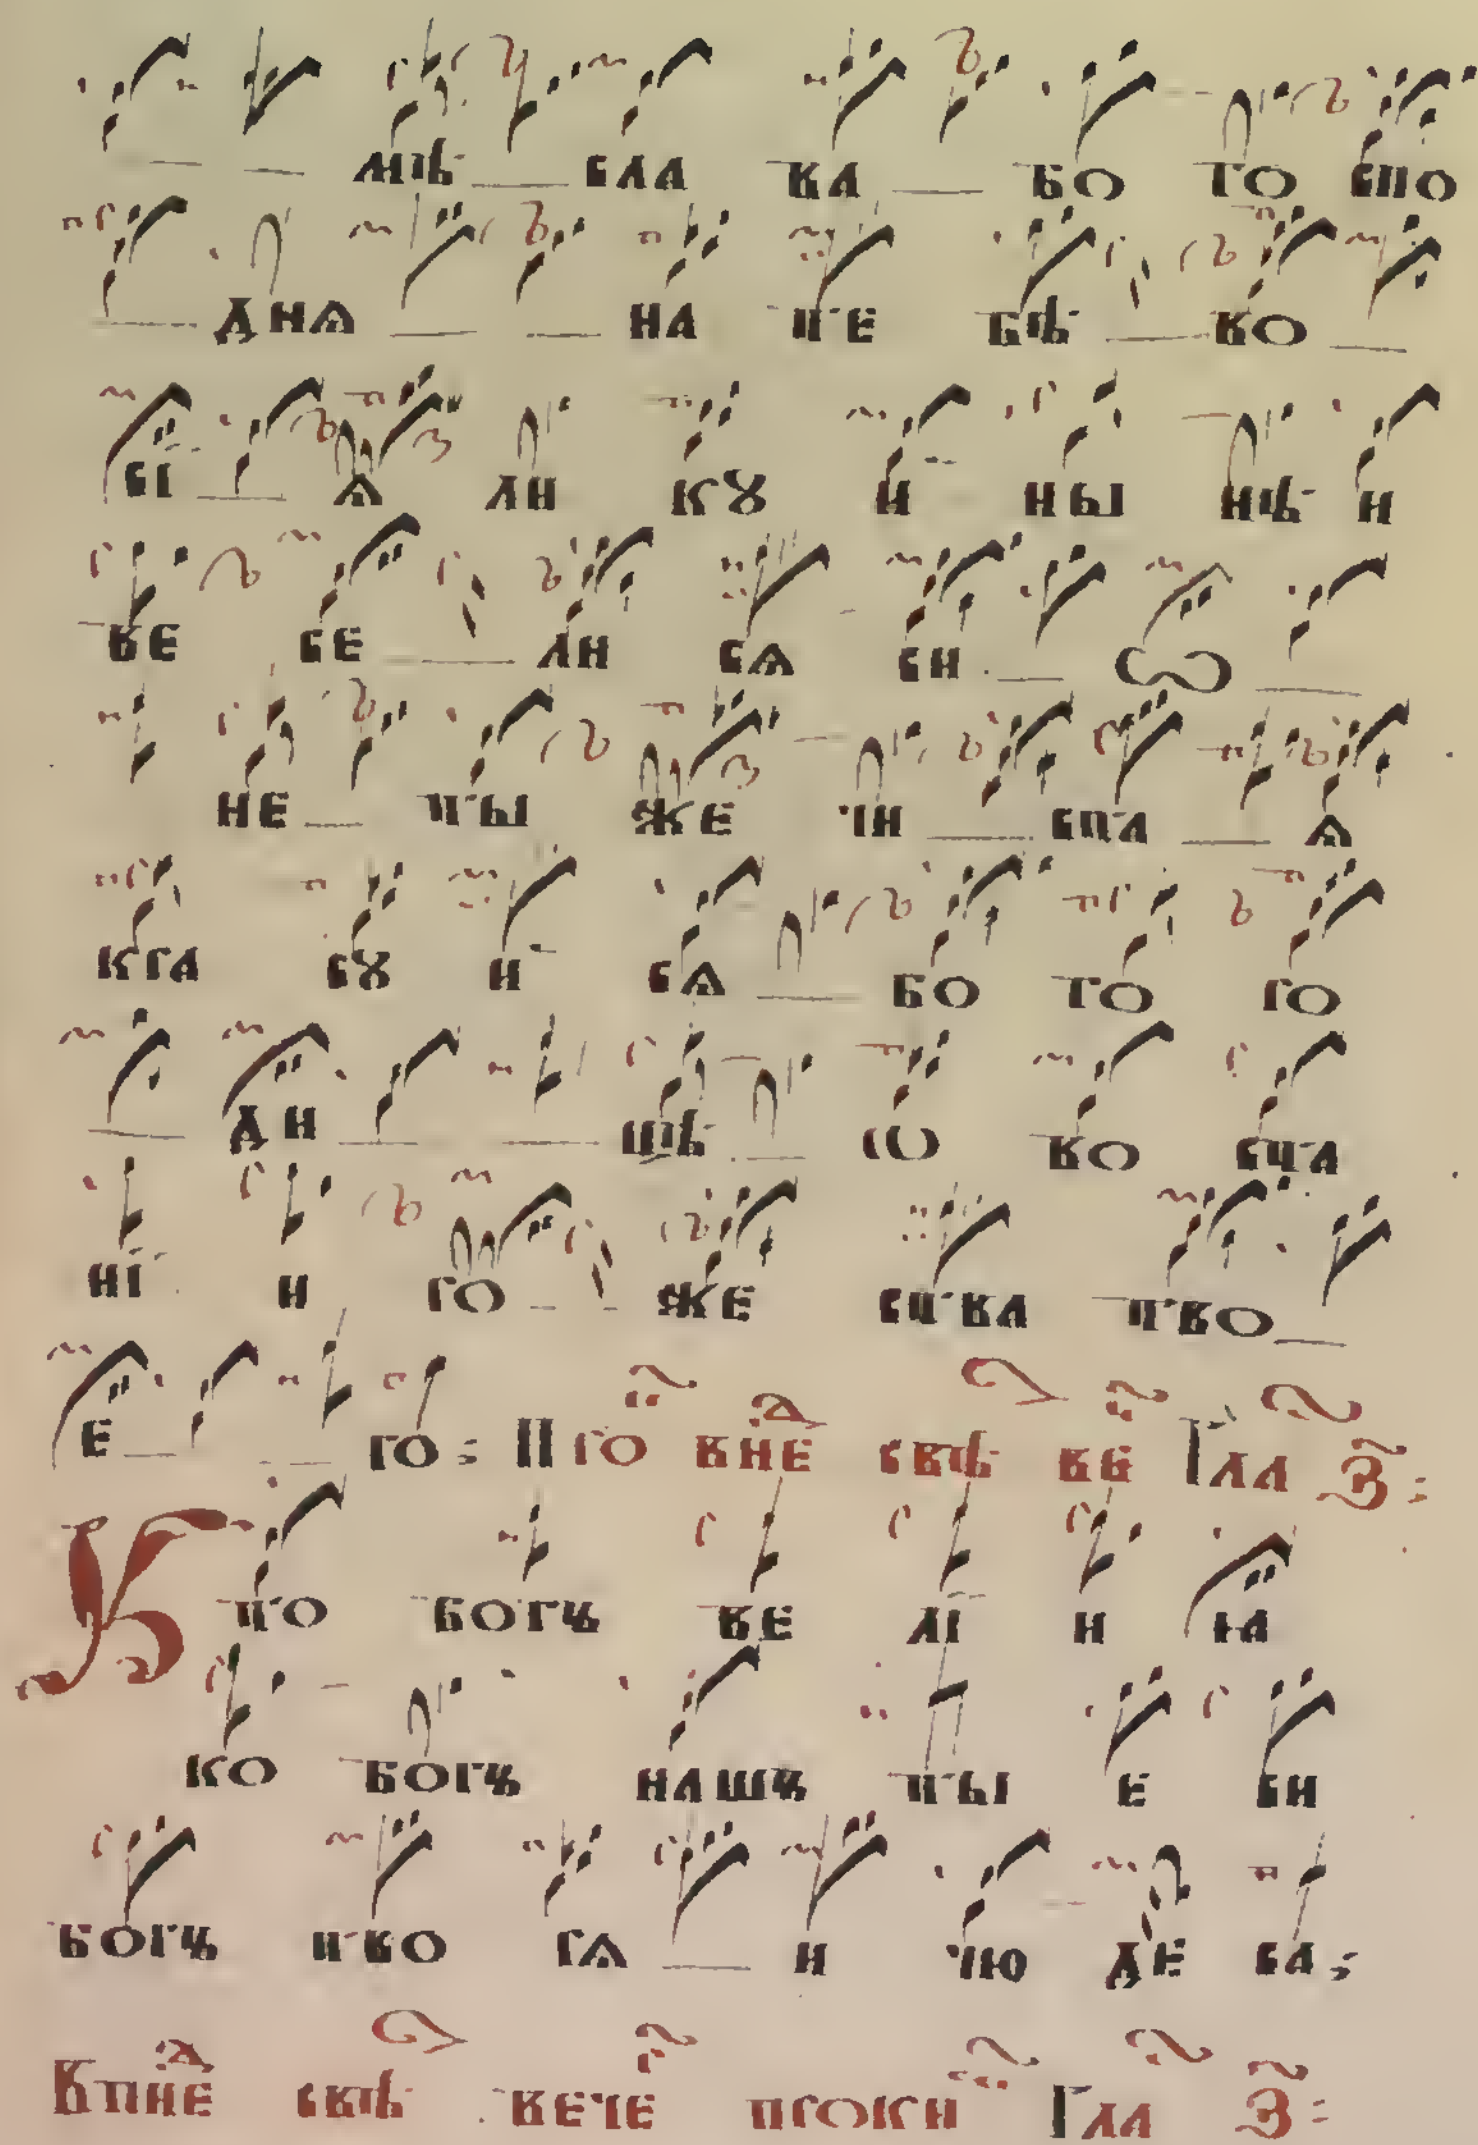 мѣ сла ва бо го спо
дня на те бѣ во
сі ѧ ли кꙋ и ны нѣ и
ве се ли сѧ си ѡ
не ты же чи ста ѧ
кра сꙋ и сѧ бо го ро
ди цѣ ѡ во ста
ні и ро же ства тво
е го : Про в не свѣ ве Гла з :
К то богъ ве лі и ꙗ
ко богъ нашъ ты е си
богъ тво рѧ и чю де са ;
В п не свѣ вече проки Гла з :